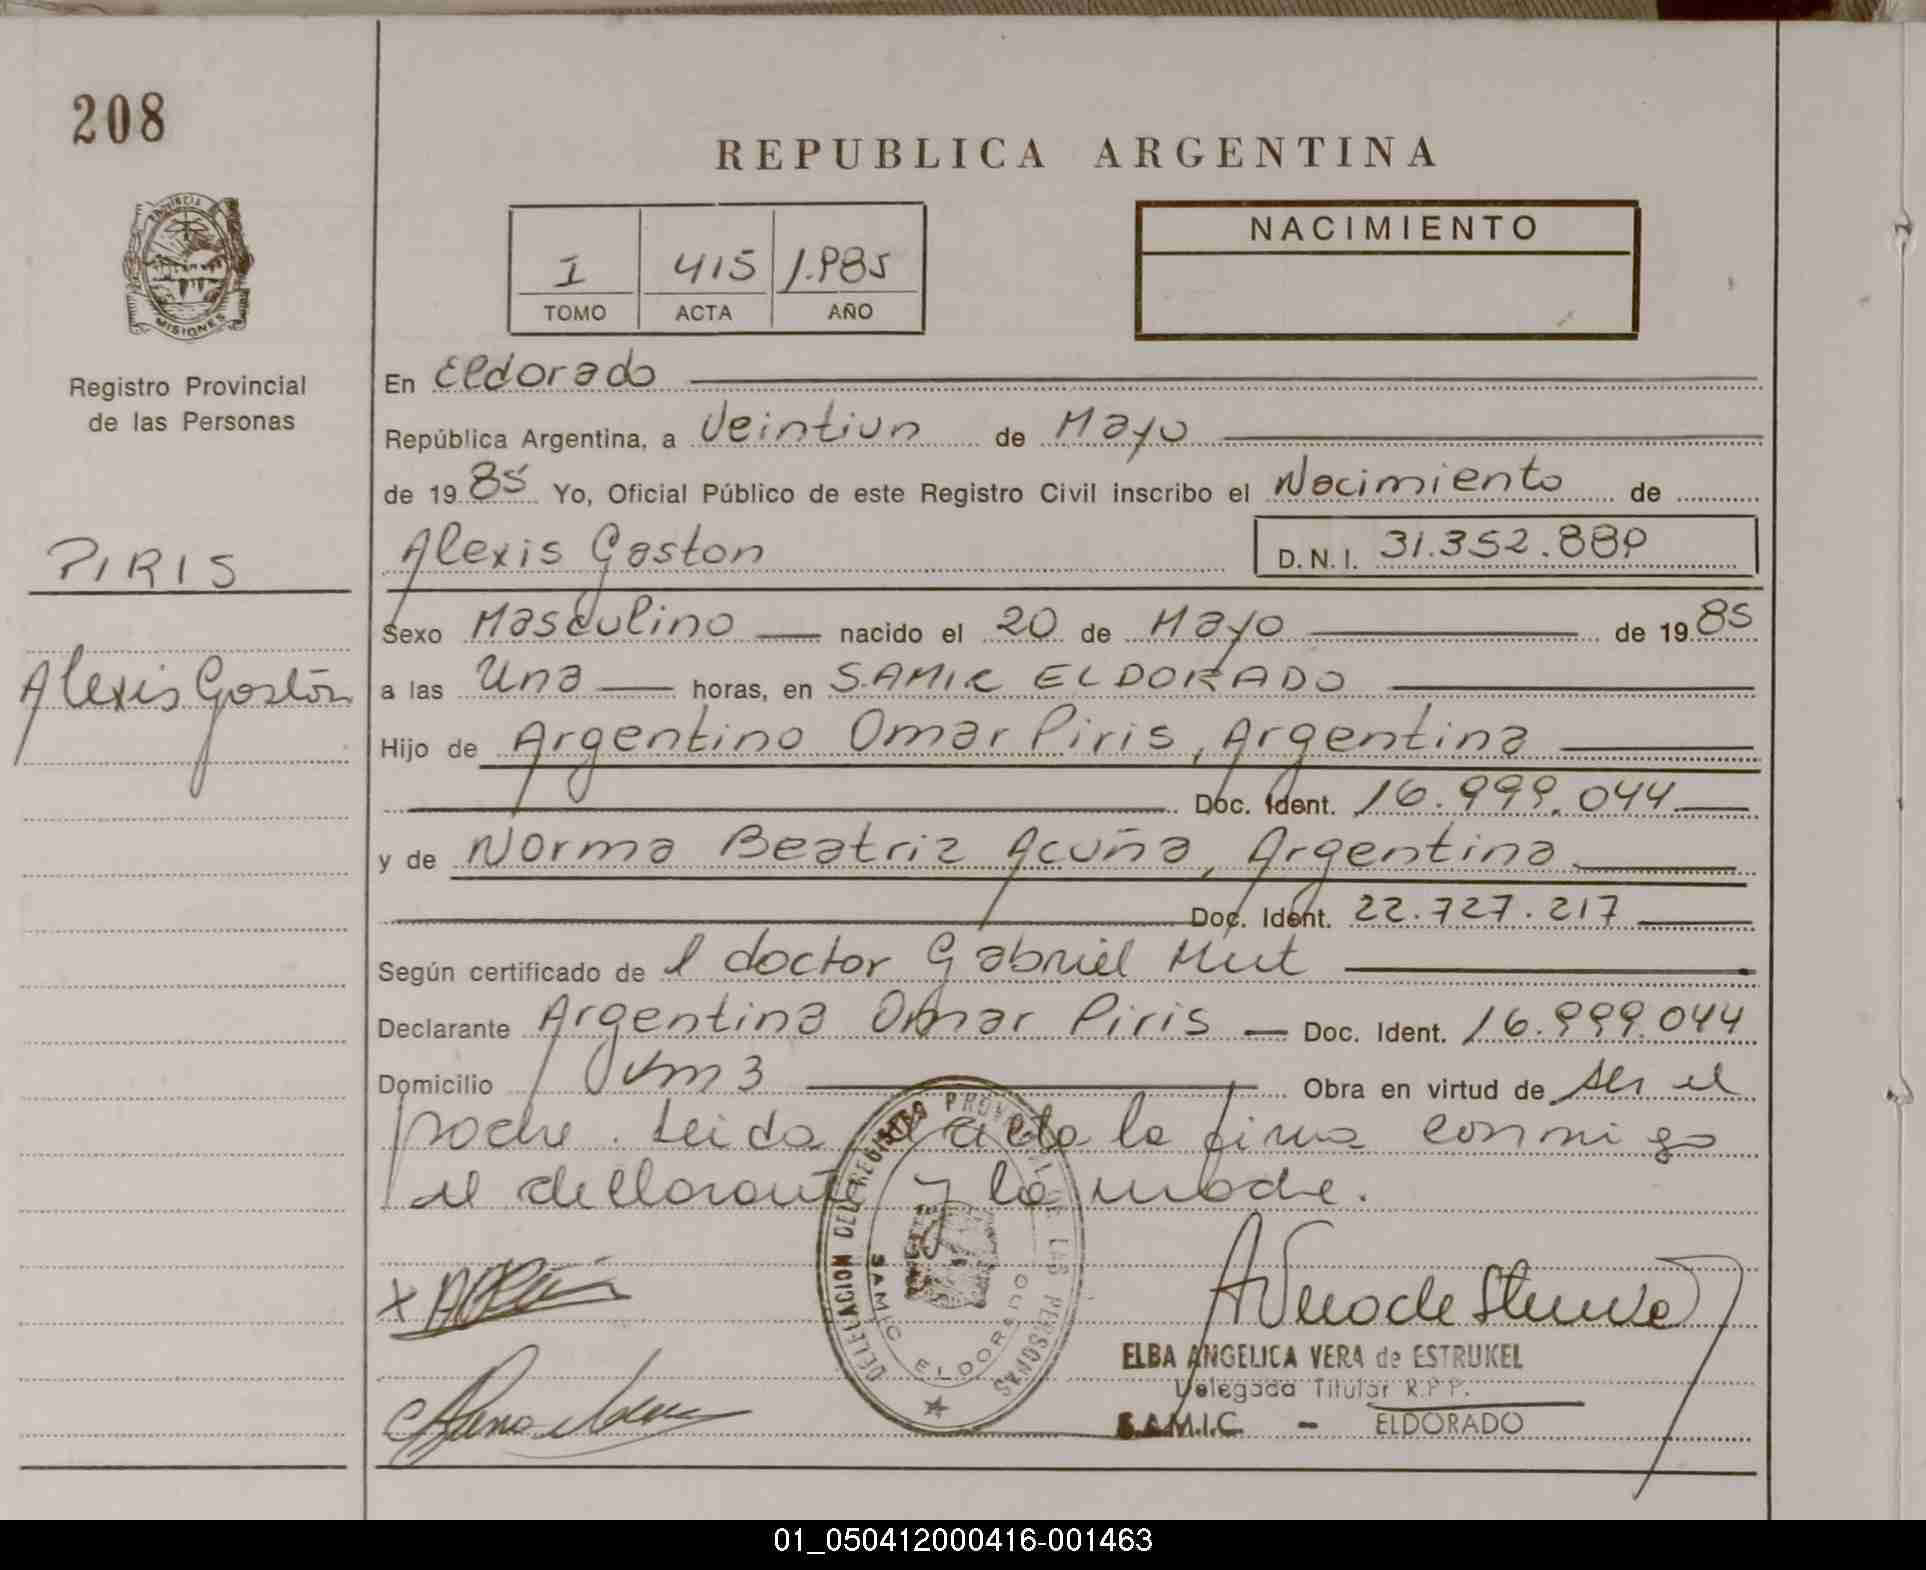 208
REPUBLICA ARGENTINA
PROVINCIA DE
MISIONES
Registro Provincial
de las Personas
I 415 1.985
TOMO ACTA AÑO
NACIMIENTO
En Eldorado
República Argentina, a Veintiun de Mayo
de 19 85 Yo, Oficial Público de este Registro Civil inscribo el Nacimiento de
PIRIS
Alexis Gaston
D.N.I. 31.352.889
Alexis Gastón
Sexo Masculino nacido el 20 de Mayo de 19 85
a las Una horas, en SAMIC ELDORADO
Hijo de Argentino Omar Piris, Argentina
Doc. Ident. 16.999.044
y de Norma Beatriz Acuña, Argentina
Doc. Ident. 22.727.217
Según certificado de l doctor Gabriel Mut
Declarante Argentina Omar Piris Doc. Ident. 16.999.044
Domicilio km 3 Obra en virtud de ser el
padre. Leida el acta la firma conmigo
el declarante y la madre.
DELEGACION DEL REGISTRO PROVINCIAL DE LAS PERSONAS
SAMIC ELDORADO
ELBA ANGELICA VERA de ESTRUKEL
Delegada Titular R.P.P.
S.A.M.I.C. - ELDORADO
01_050412000416-001463